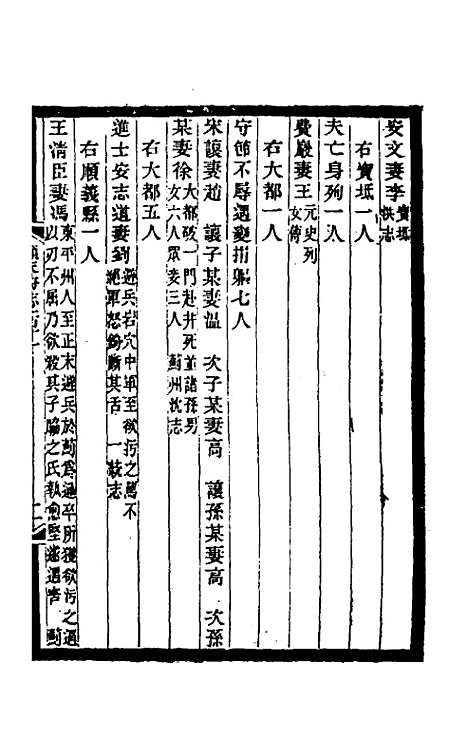 安文妻李寶坻洪志
右寶坻一人
夫亡身殉一人
費巖妻王元史列女傳
右大都一人
守節不辱遇變捐軀七人
宋讓妻趙 讓子某妻溫 次子某妻高 讓孫某妻高 次孫
某妻徐大都破一門赴井死並諸孫男女六人眾妾三人 薊州沈志
右大都五人
進士安志道妻劉避兵石穴中軍至欲污之罵不絕軍怒鉤斷其舌 一統志
右順義縣一人
王清臣妻馮東平州人至正末避兵於薊為逃卒所獲欲污之逼以刃不屈乃欲殺其子脇之氏執愈堅遂遇害 薊